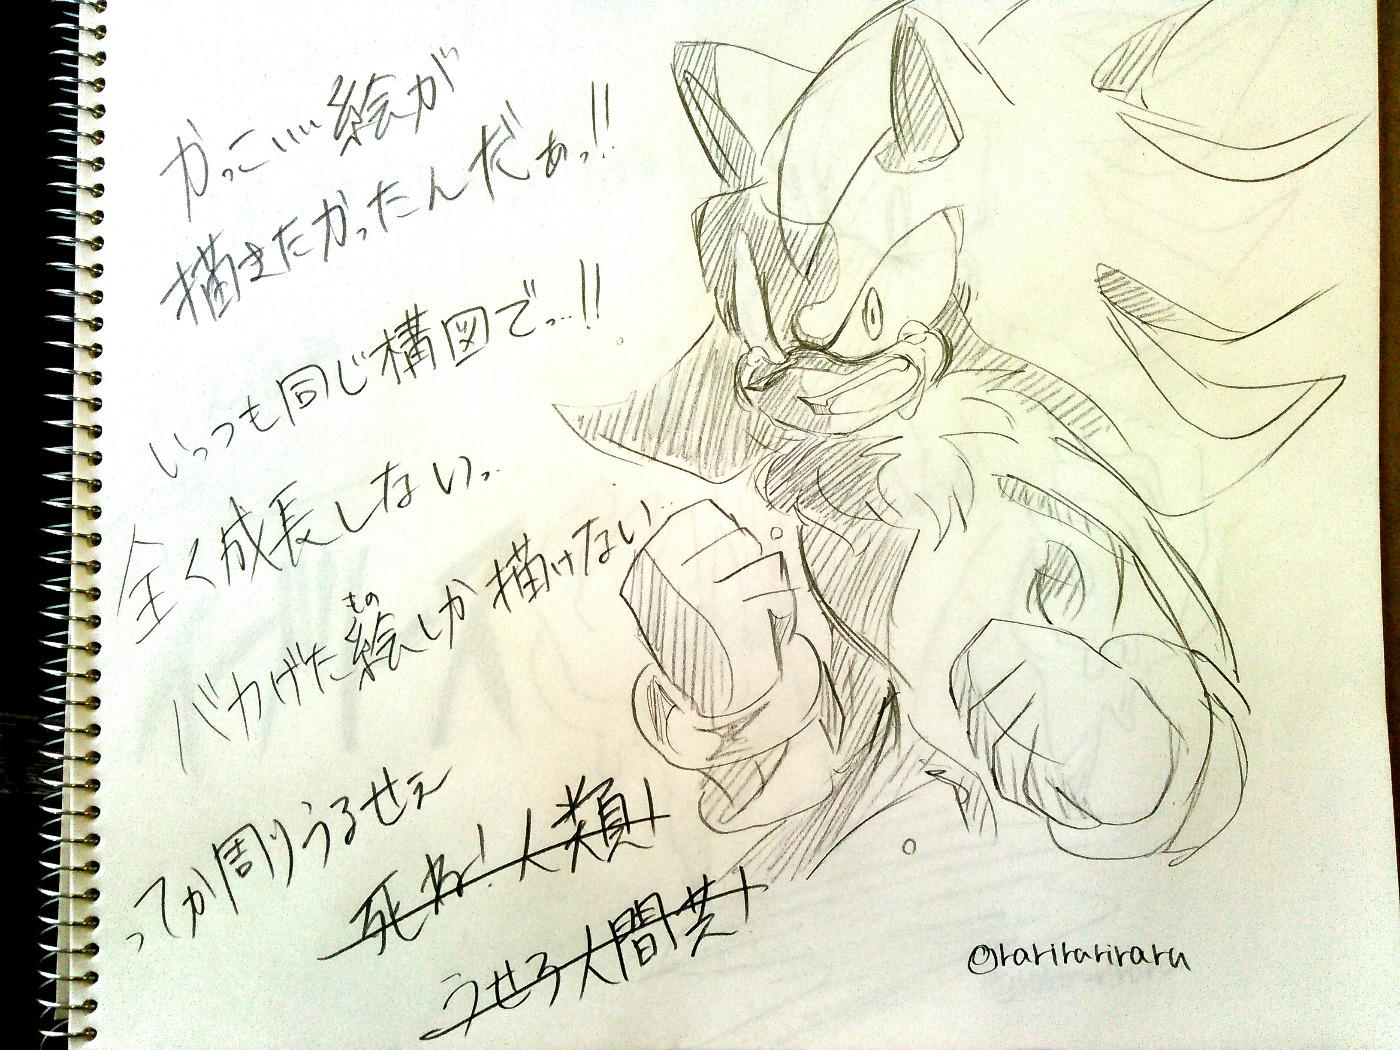 かっこいい絵が
描きたかったんだぁっ!!
いっつも同じ構図でっ…!!
全く成長しないっ…
もの
バカげた絵しか描けない…
ってか周りうるせぇ
死ね！人類！
うせろ人間共！
@rarirariraru